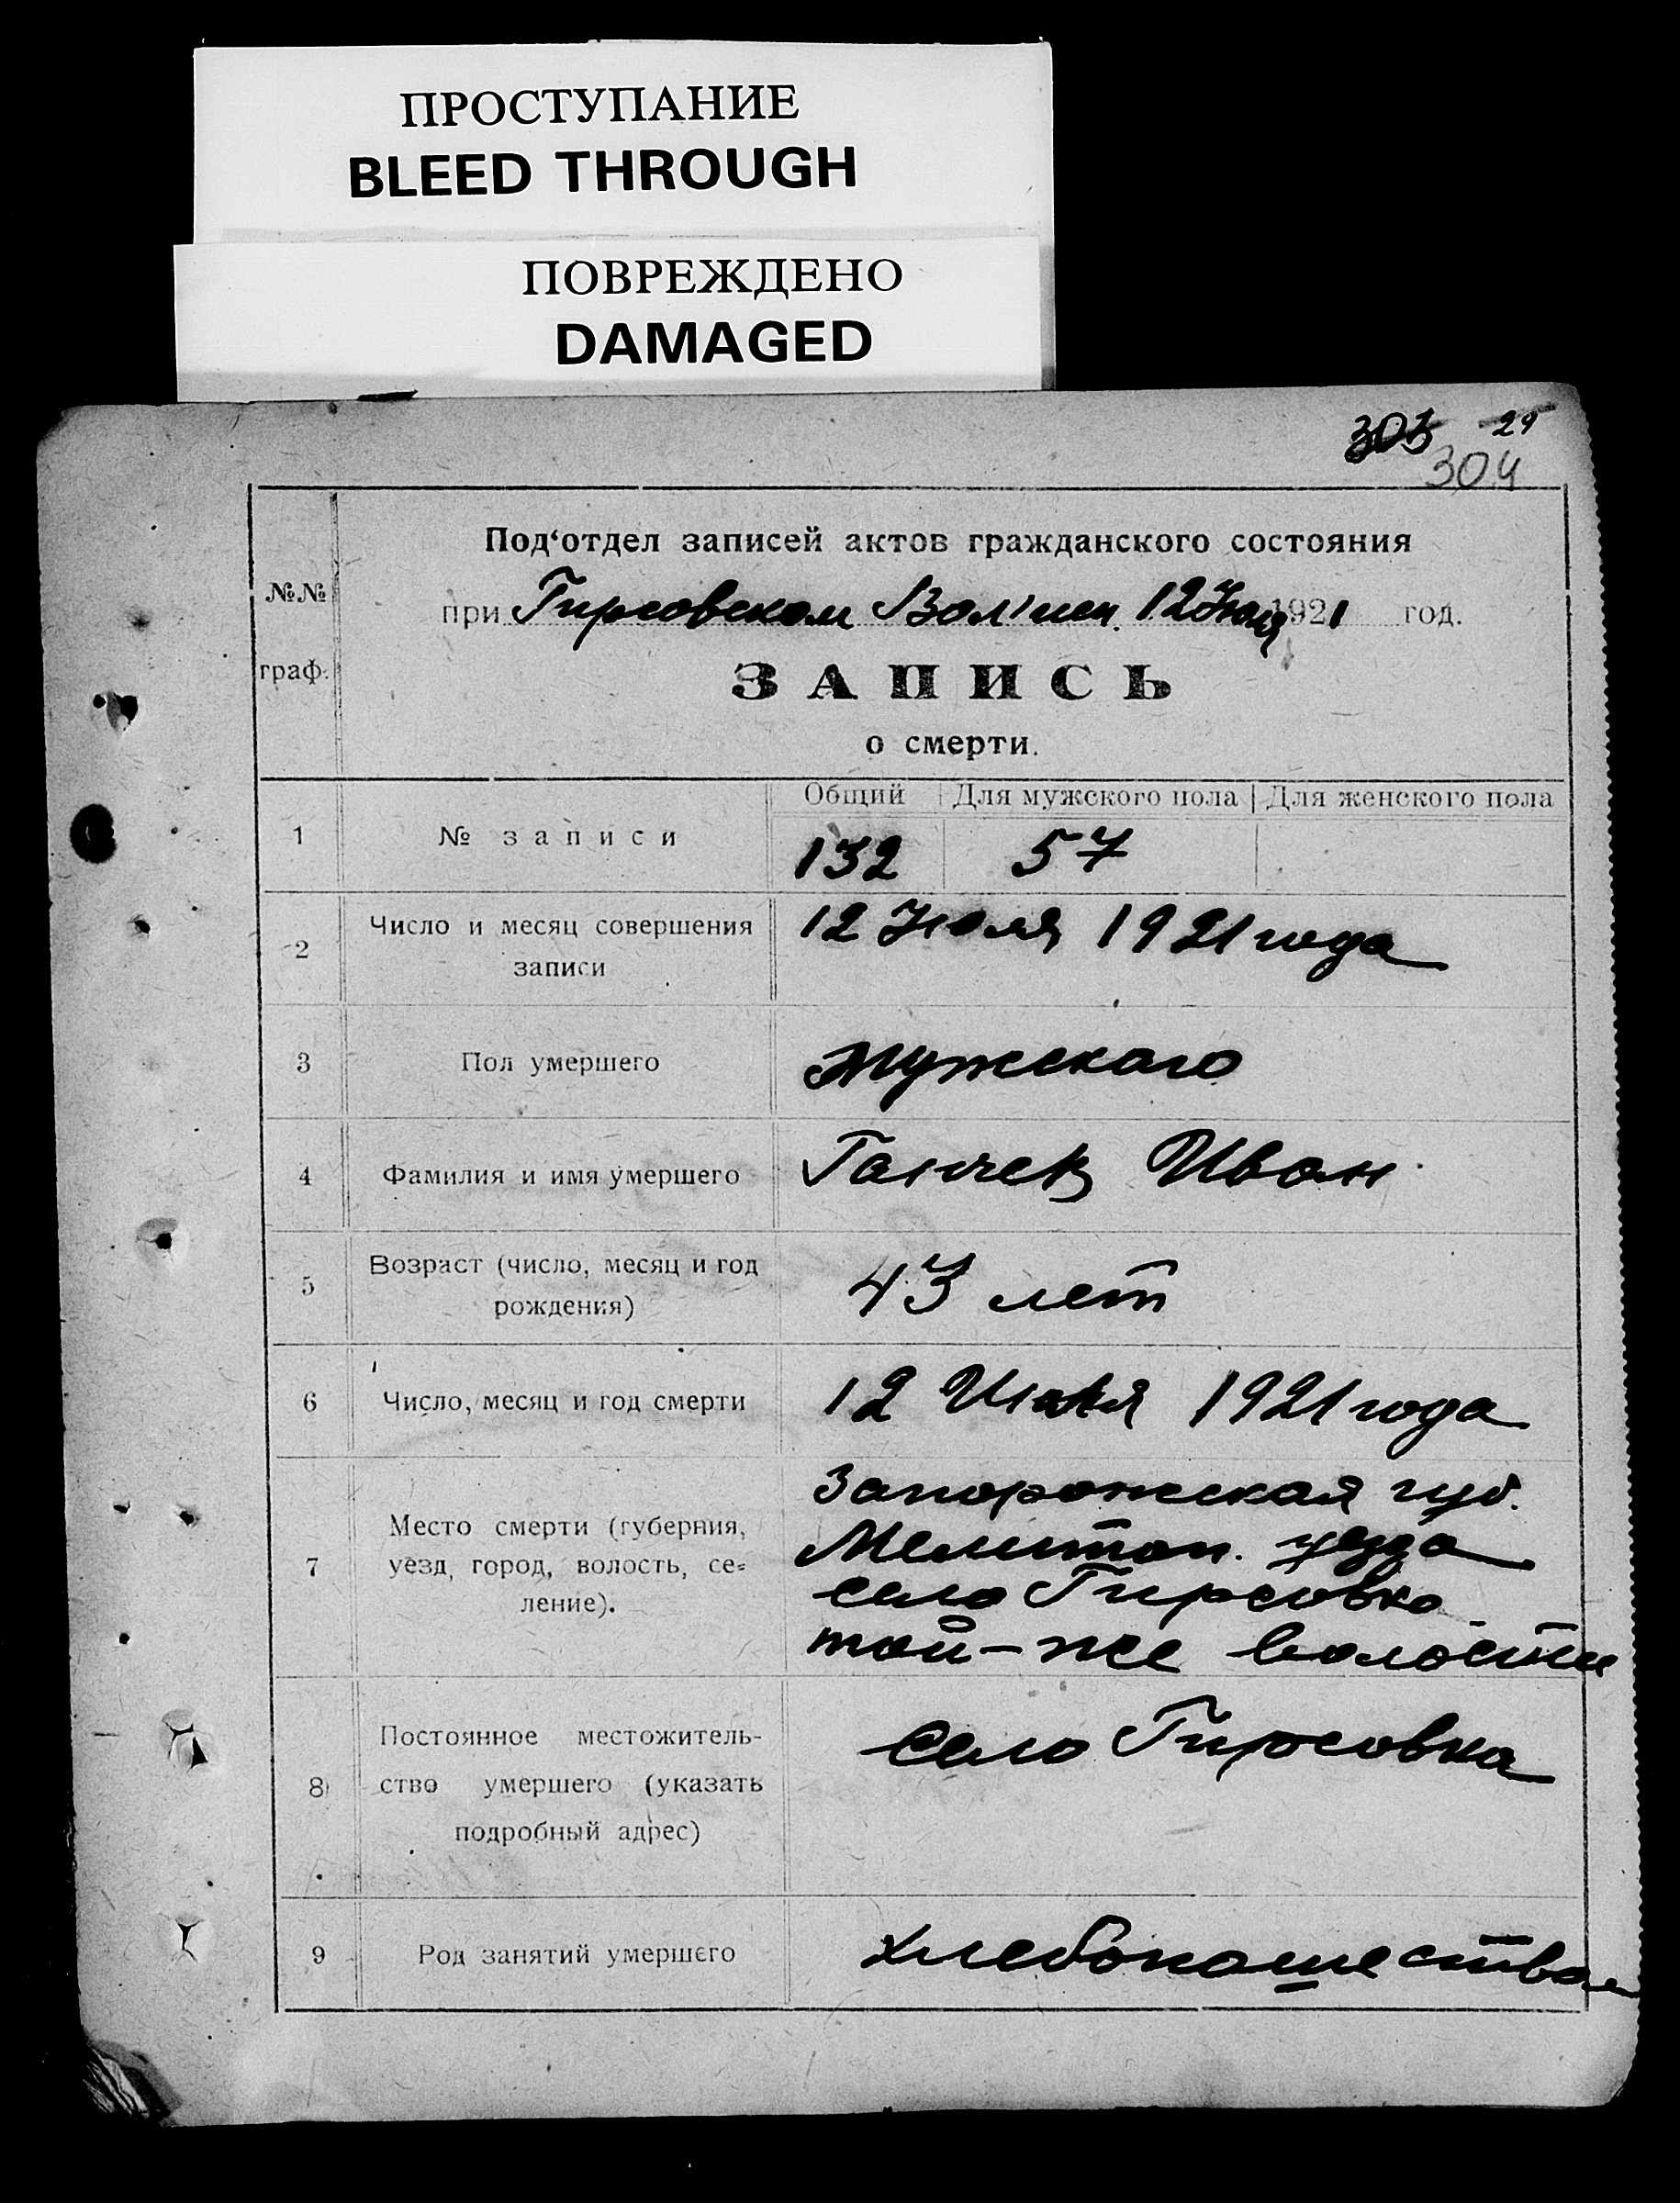 ПРОСТУПАНИЕ
BLEED THROUGH
ПОВРЕЖДЕНО
DAMAGED
303 29
304
Под‘отдел записей актов гражданского состояния
№№ граф.
при Гирсовском Вол'исп. 12 Июля 1921 год.
ЗАПИСЬ
о смерти.
Общий Для мужского пола Для женского пола
1 № записи 132 57
2 Число и месяц совершения
записи
12 Июля 1921 года
3 Пол умершего мужскаго
4 Фамилия и имя умершего Ганчев Иван
5 Возраст (число, месяц и год
рождения)
43 лет
6 Число, месяц и год смерти 12 Июля 1921 года
7 Место смерти (губерния,
уезд, город, волость, се-
ление).
Запорожская губ.
Мелитоп. уезда
село Гирсовка
той-же волости
8 Постоянное местожитель-
ство умершего (указать
подробный адрес)
село Гирсовка
9 Род занятий умершего хлебопашество